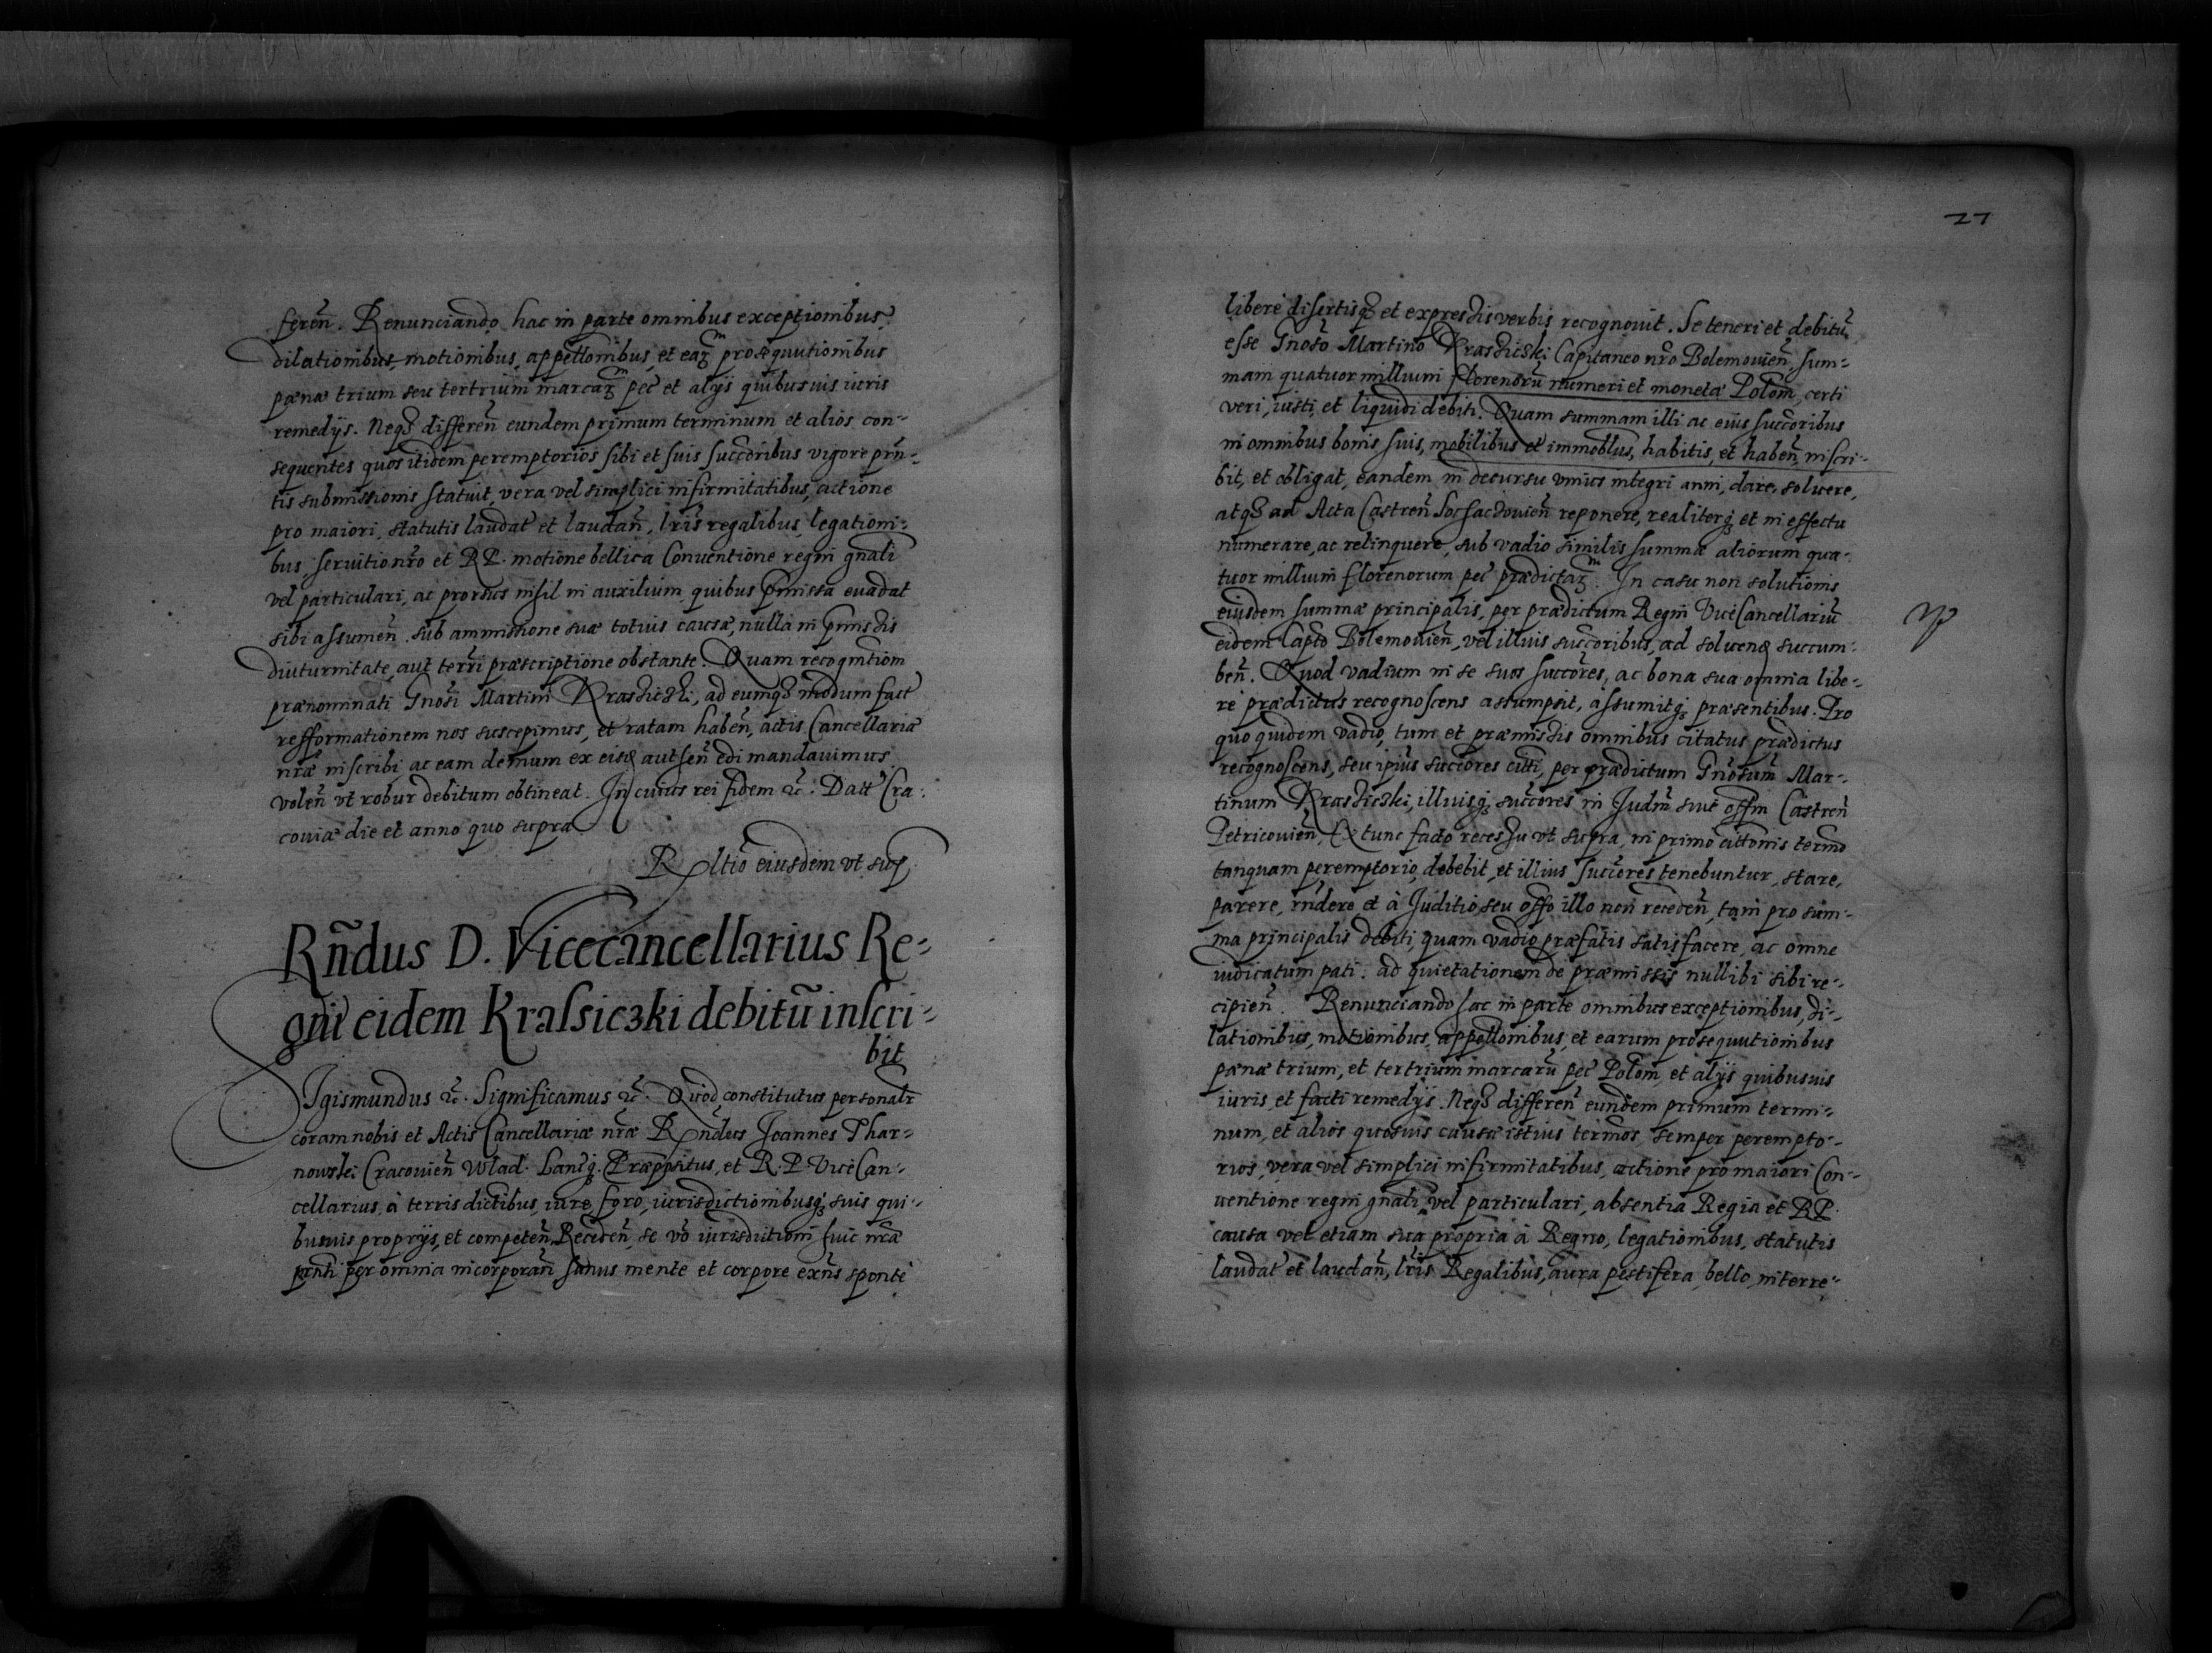 feren̄. Renunciando hac in parte omnibus exceptionibus,
dilationibus, motionibus, appellonibus, et earꝫ prosequutionibus
pænæ trium seu tertrium marcarꝫ pec̄ et alijs quibusuis iuris
remedijs. Neqꝫ differen̄ eundem primum terminum et alios con-
sequentes quos itidem peremptorios sibi et suis succōribus vigore prn̄-
tis submissionis statuit, vera vel simplici infirmitatibus, actione
pro maiori, statutis laudat̄ et laudan̄, lr̄is regalibus, legationi-
bus, seruitio nr̄o et RP. motione bellica Conuentione regni gn̄ali
vel particulari, ac prorsus nihil in auxilium, quibus p̄missa euadat
sibi assumen̄. sub ammissione suæ totius causæ, nulla in p̄missis
diuturnitate, aut terr̄i præscriptione obstante. Quam recognitiom
prænominati Gn̄osi Martini Krassiczki, ad eumqꝫ modum fact̄
refformationem nos suscepimus, et ratam haben̄, actis Cancellariæ
nr̄æ inscribi, ac eam demum ex eisd̄ autħen̄ edi mandauimus
volen̄ vt robur debitum obtineat. In cuius rei fidem &c̄. Datt̄ Cra-
couiæ die et anno quo supra.
Rltio eiusdem vt sup̄
Rn̄dus D. Vicecancellarius Re-
gni eidem Krassiczki debitū inscri-
bit
Sigismundus &c̄. Significamus &c̄. Quod constitutus personalr̄
coram nobis et Actis Cancellariæ nr̄æ Rn̄dus Joannes Thar-
nowski Cracouien̄ Wlad. Lancꝫ. Præp̄pitus, et R.P. ViceCan-
cellarius, à terris dictibus, iure, foro, iurisdictionibusqꝫ suis qui-
busuis proprijs, et competen̄. Receden̄, se vō iurisdictioni huic nr̄æ
prn̄ti per omnia incorporan̄ sanus mente et corpore exn̄s sponte
27
liberè disertisqꝫ et expressis verbis recognouit. Se teneri et debitū
esse Gn̄oso Martino Krassiczki Capitaneo nr̄o Bolemouien̄, sum-
mam quatuor millium florenorū numeri et monetæ Polōm, certi
veri, iusti, et liquidi debiti. Quam summam illi ac eius succōribus
in omnibus bonis suis, mobilibus et immoblūs, habitis, et haben̄, inscri-
bit, et obligat, eandem in decursu vnius integri anni, dare, soluere,
atqꝫ ad Acta Castren̄ Sochaczouien̄ reponere, realiterqꝫ et in effectu
numerare, ac relinquere, sub vadio similis summæ aliorum qua-
tuor millium florenorum pec̄ prædictarꝫ. In casu non solutionis
eiusdem summæ principalis, per prædictum Regni ViceCancellariū
eidem Capt̄o Bolemouien̄, vel illius succōribus, ad soluend̄ succum-
ben̄. Quod vadium in se suos succōres, ac bona sua omnia libe-
rè prædictus recognoscens assumpsit, assumitqꝫ præsentibus. Pro
quo quidem vadio, tum et præmissis omnibus citatus prædictus
recognoscens, seu ipius succōres citt̄i, per prædictum Gn̄osum Mar-
tinum Krassiczki, illiusqꝫ succōres in Judm̄ siue offm̄ Castren̄
Petricouien̄, Ex tunc facto recessu vt supra, in primo cittōnis termō
tanquam peremptorio, debebit, et illius succōres tenebuntur, stare,
parere, rn̄dere et à Juditio seu offo illo non receden̄, tam pro sum-
ma principalis debiti, quam vadio præfatis satisfacere, ac omne
iudicatum pati. ad quietationem de præmissis nullibi sibi re-
cipien̄. Renunciando hac in parte omnibus exceptionibus, di-
lationibus, motionibus, appellonibus, et earum prosequutionibus
pænæ trium, et tertrium marcarū pec̄ Polōm, et alijs quibusuis
iuris, et facti remedijs. Neqꝫ differen̄ eundem primum termi-
num, et alios quosuis causæ istius termōs, semper perempto-
rios, vera vel simplici infirmitatibus, actione pro maiori Con-
uentione regni gn̄ali, vel particulari, absentia Regia et RP.
causa vel etiam sua propria à Regno, legationibus, statutis
laudat̄ et laudan̄, lr̄is Regalibus, aura pestifera, bello, interre-